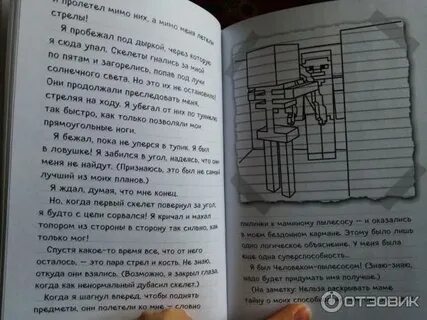 и пролетел мимо них, а мимо меня летели
стрелы!
Я пробежал под дыркой, через которую
я сюда упал. Скелеты гнались за мной
по пятам и загорелись, попав под луч
солнечного света. Но это их не остановило!
Они продолжали преследовать меня,
стреляя на ходу. Я убегал от них по туннелю
так быстро, как только позволяли мои
прямоугольные ноги.
Я бежал, пока не уперся в тупик. Я был
в ловушке! Я забился в угол, надеясь, что они
меня не найдут. (Признаюсь, это был не самый
лучший из моих планов.)
Я ждал, думая, что мне конец.
Но, когда первый скелет повернул за угол,
я будто с цепи сорвался! Я кричал и махал
топором из стороны в сторону так сильно, как
только мог!
Спустя какое-то время все, что от него
осталось, — это пара стрел и кость. Не знаю,
откуда они взялись. (Возможно, я закрыл глаза,
когда как ненормальный дубасил скелет.)
Когда я шагнул вперед, чтобы поднять
предметы, они полетели ко мне — словно
пылинки к маминому пылесосу — и оказались
в моем бездонном кармане. Этому было лишь
одно логическое объяснение. У меня была
еще одна суперспособность...
Я был Человеком-пылесосом! (Знаю-знаю,
надо будет придумать имя получше.)
(На заметку: Нельзя раскрывать маме
тайну о моих способностях
ОТЗОВИК